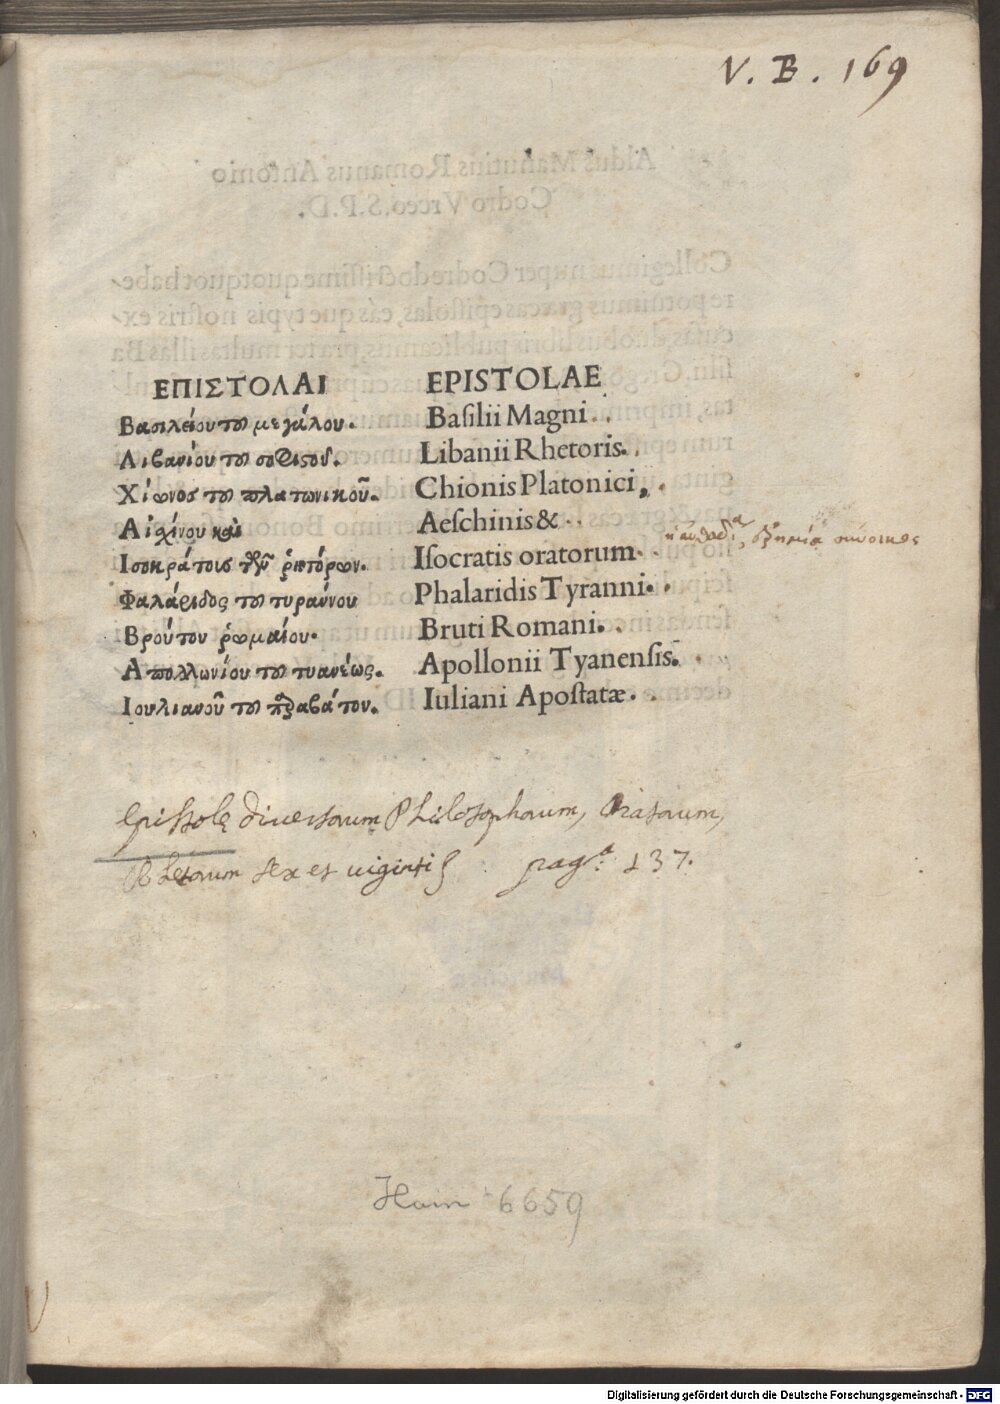 V. B. 169
ΕΠΙΣΤΟΛΑΙ
Βασιλείου τοῦ μεγάλου.
Λιβανίου τοῦ σοφιστοῦ.
Χίωνος τοῦ πλατωνικοῦ.
Αἰσχίνου καὶ
Ισοκράτους τῶν ῥητόρων.
Φαλάριδος τοῦ τυράννου
Βρούτου ῥωμαίου.
Απολλωνίου τοῦ τυανέως.
Ιουλιανοῦ τοῦ παραβάτου.
EPISTOLAE
Baſilii Magni.
Libanii Rhetoris.
Chionis Platonici,
Aeſchinis &
Iſocratis oratorum
Phalaridis Tyranni.
Bruti Romani.
Apollonii Tyanenſis.
Iuliani Apoſtatæ.
Epistolę diuersorum Philosophorum, Oratorum,
Rhetorum sex et uiginti pagª. 137.
Hain 6659
Digitalisierung gefördert durch die Deutsche Forschungsgemeinschaft - DFG